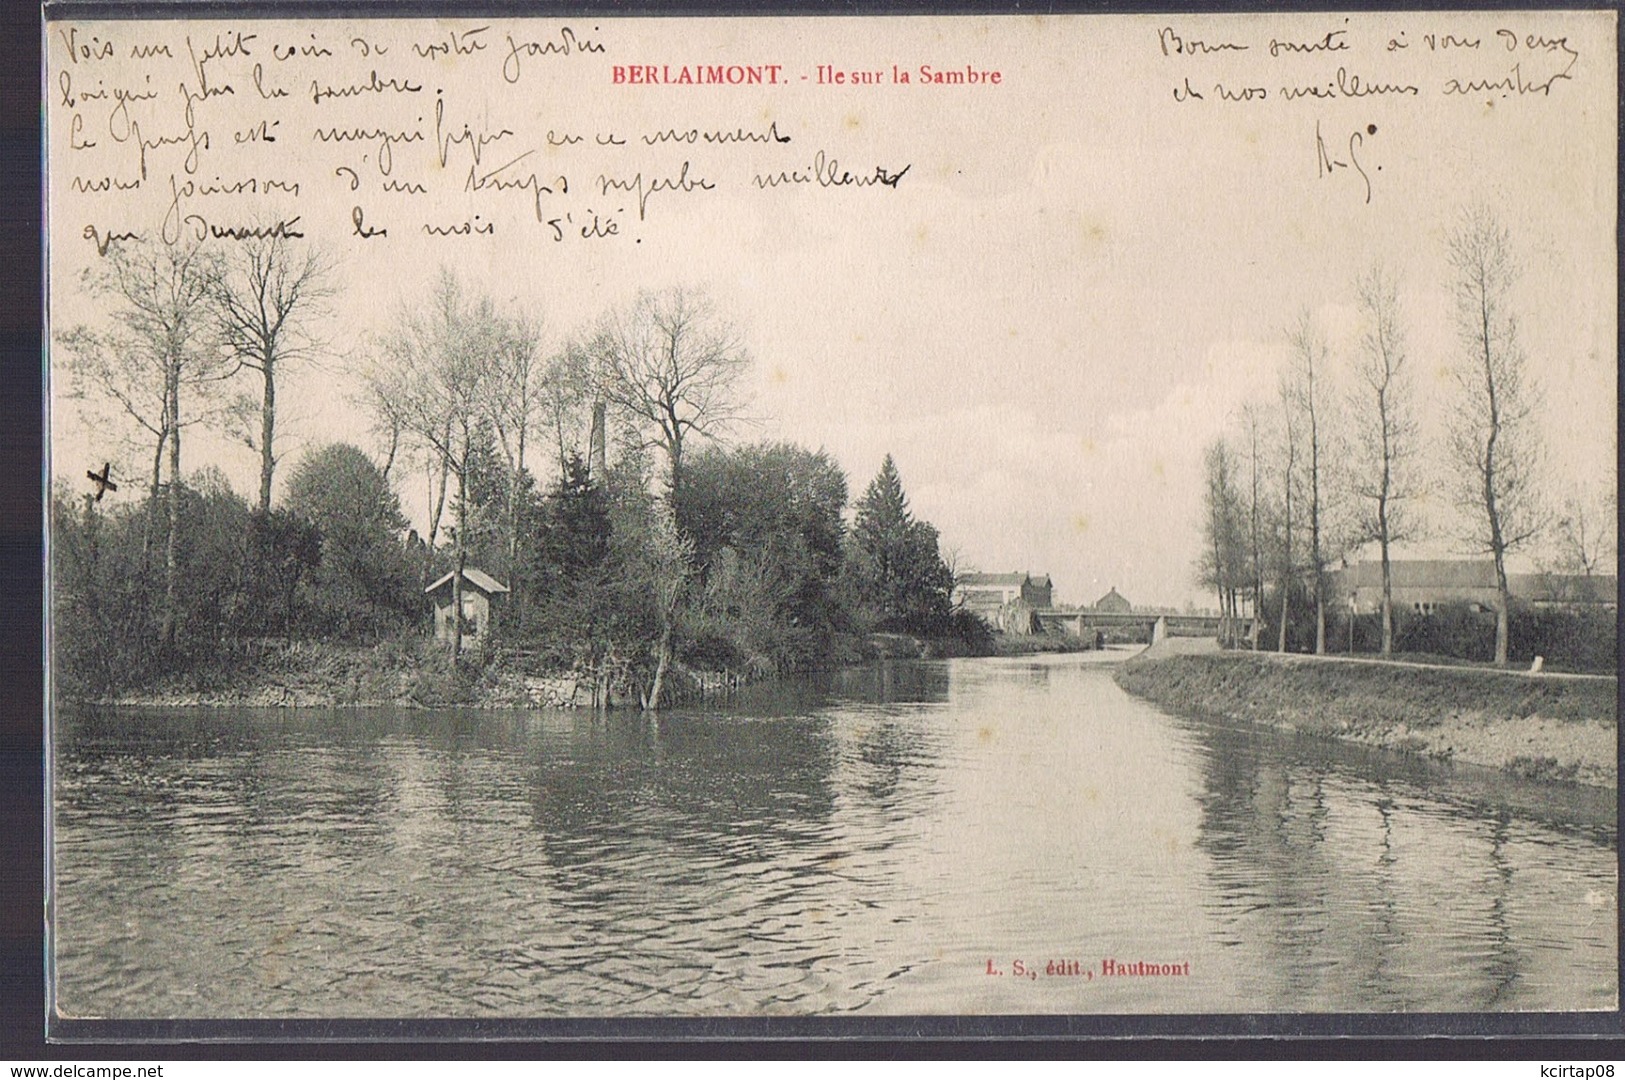 Vois un petit coin de notre jardin
baigné par la sambre.
Le pays est magnifique en ce moment
nous jouissons d'un temps superbe meilleur
que durant les mois d'été.
BERLAIMONT. - Ile sur la Sambre
Bonne santé à vous deux
et nos meilleures amitiés
L. S., édit., Hautmont
delcampe.net
kcirtap08